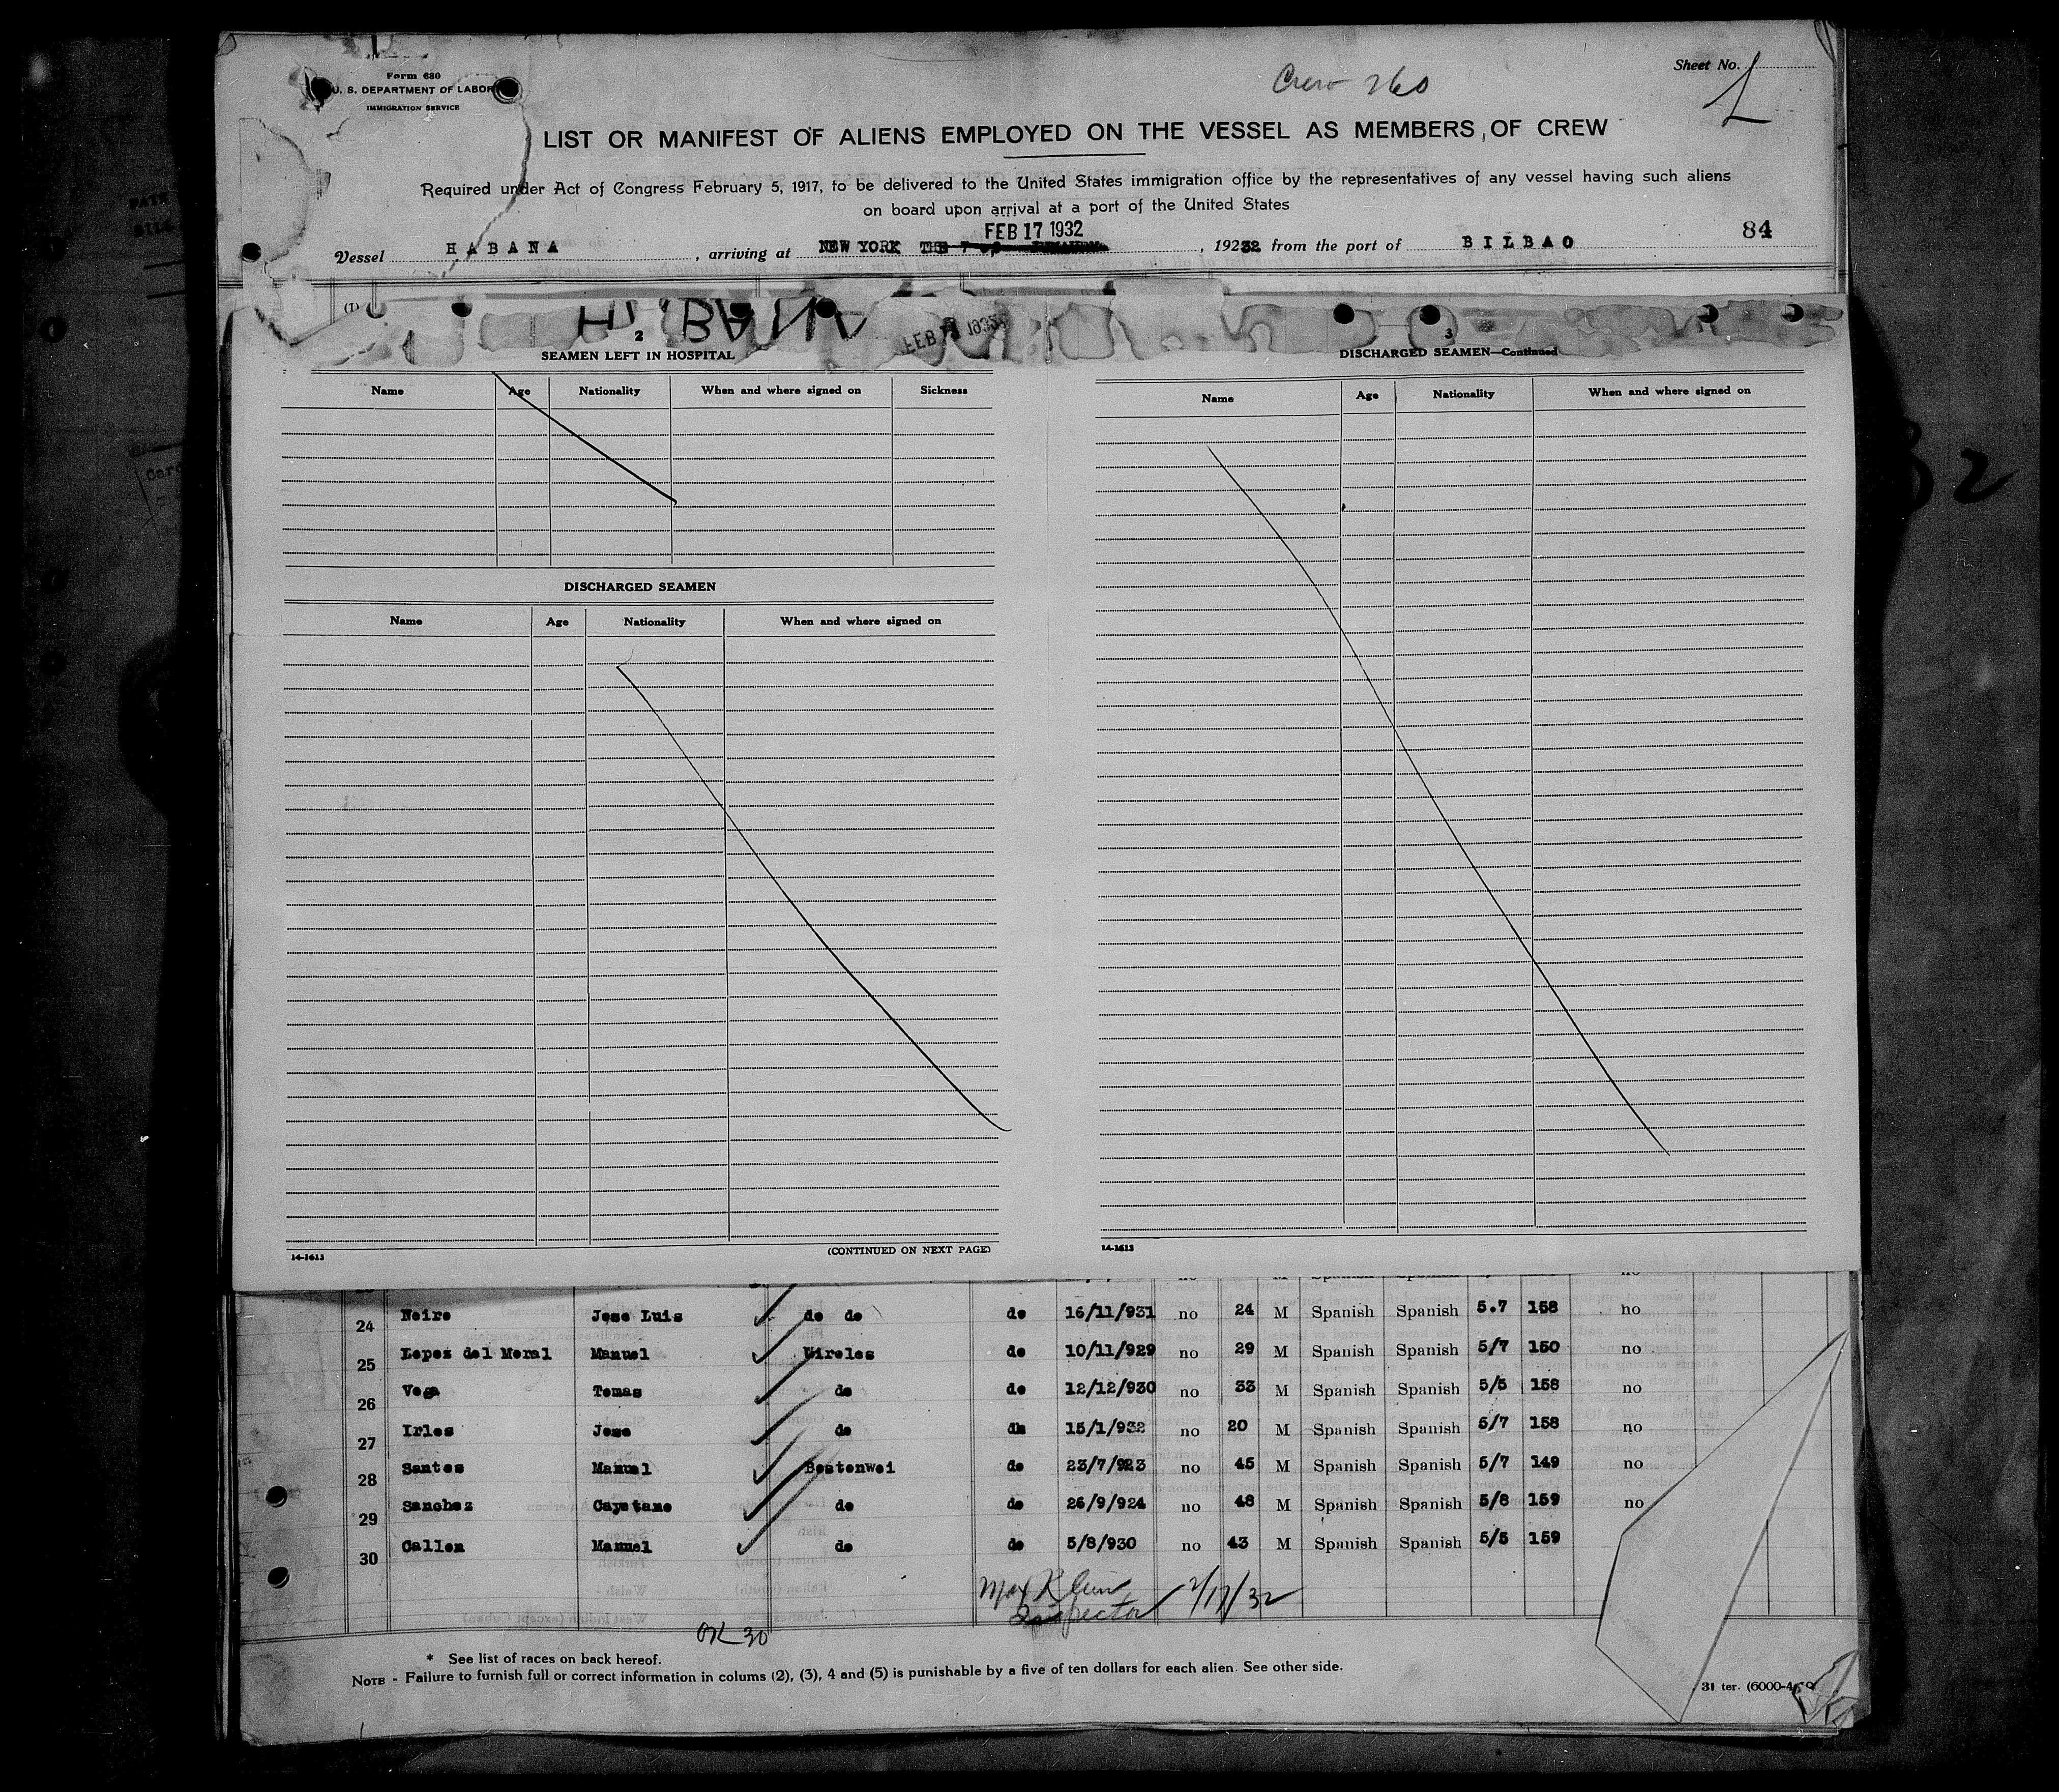 Form 680
U. S. DEPARTMENT OF LABOR
IMMIGRATION SERVICE
Crew 260
Sheet No. 1
LIST OR MANIFEST OF ALIENS EMPLOYED ON THE VESSEL AS MEMBERS OF CREW
Required under Act of Congress February 5, 1917, to be delivered to the United States immigration office by the representatives of any vessel having such aliens
on board upon arrival at a port of the United States
FEB 17 1932
84
Vessel HABANA, arriving at NEW YORK THE, 19232 from the port of BILBAO
(1)
HABANA
FEB 17 1932
2
SEAMEN LEFT IN HOSPITAL
Name Age Nationality When and where signed on Sickness
DISCHARGED SEAMEN
Name Age Nationality When and where signed on
14-1613
(CONTINUED ON NEXT PAGE)
3
DISCHARGED SEAMEN—Continued
Name Age Nationality When and where signed on
14-1613
24 Neiro Jose Luis do do do 16/11/931 no 24 M Spanish Spanish 5.7 158 no
25 Lopez del Moral Manuel Wireles do 10/11/929 no 29 M Spanish Spanish 5/7 150 no
26 Vega Tomas do do 12/12/930 no 33 M Spanish Spanish 5/5 158 no
27 Irles Jose do do 15/1/932 no 20 M Spanish Spanish 5/7 158 no
28 Santos Manuel Boatenwei do 23/7/923 no 45 M Spanish Spanish 5/7 149 no
29 Sanchez Cayetano do do 26/9/924 no 48 M Spanish Spanish 5/8 159 no
30 Callon Manuel do do 5/8/930 no 43 M Spanish Spanish 5/5 159
Max Klein 2/17/32
Inspector
OK 30
* See list of races on back hereof.
NOTE - Failure to furnish full or correct information in colums (2), (3), 4 and (5) is punishable by a five of ten dollars for each alien. See other side.
31 ter. (6000-4